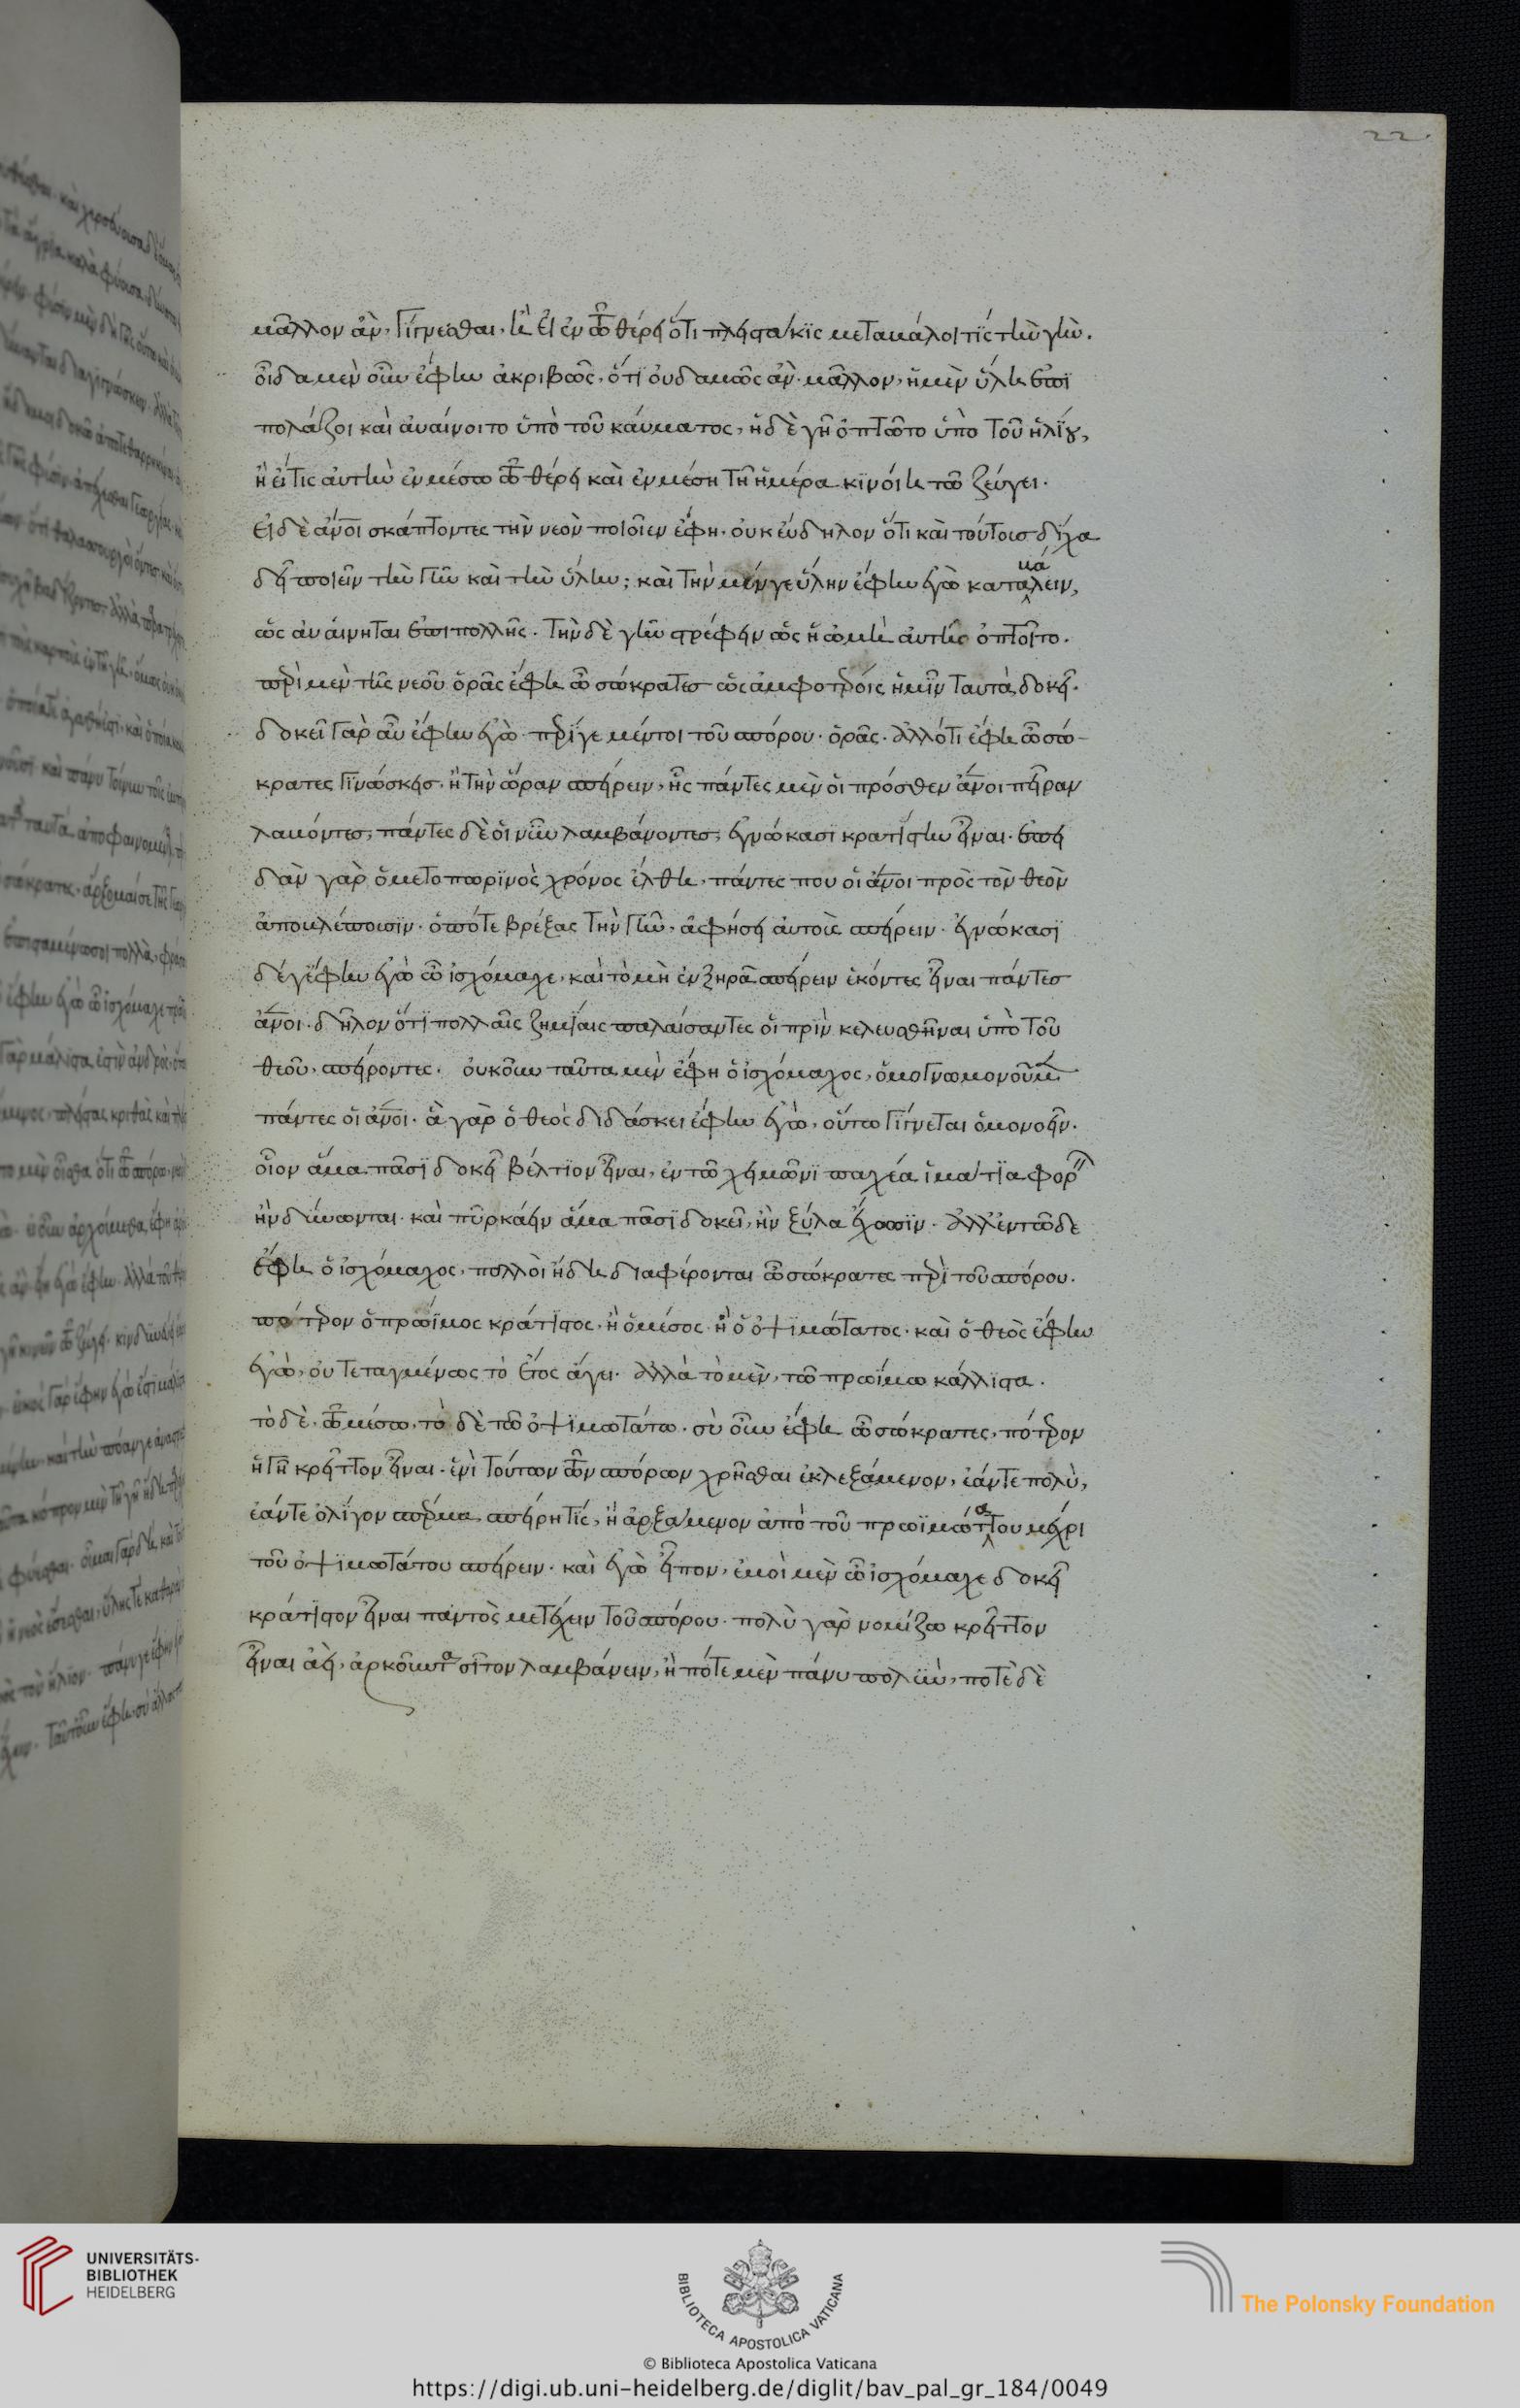 22
μᾶλλον ἂν, γίγνεσθαι, ἢ εἰ ἐν τῶ θέρει ὅτι πλειστάκϊς μεταβάλοι τίς τὴν γῆν.
οἶδα μὲν οὖν ἔφην ἀκριβῶς, ὅτϊ οὐδαμῶς ἂν μᾶλλον, ἡ μὲν ὕλη ἐπϊ
πολάζοι καὶ ἀυαίνοιτο ὑπὸ τοῦ κάυματος, ἡ δὲ γῆ ὀπτῶτο ὑπὸ τοῦ ἡλίου,
ἢ εἴ τις ἀυτὴν ἐν μέσω τῶ θέρει καὶ ἐν μέση τῆ ἡμέρα κϊνοίη τῶ ζεύγει.
Εἰ δὲ ἄνοι σκάπτοντες τὴν νεὸν ποιοῖεν ἔφη. οὐκ ἔυδηλον ὅτι καὶ τούτοισ δίχα
δεῖ ποιεῖν τὴν γῆν καὶ τὴν ὕλην; καὶ τὴν μέν γε ὕλην ἔφην ἐγὼ καταβάλειν,
ὡς ἀυάινηται ἐπιπολλῆς. τὴν δὲ γῆν στρέφειν ὡς ἡ ὠμὴ ἀυτῆς ὀπτοῖτο.
περὶ μὲν τῆς νεοῦ ὁρᾶς ἔφη ὦ σώκρατεσ ὡς ἀμφοτέροις ἡμῖν ταυτὰ δοκεῖ.
δοκεῖ γὰρ ἂν ἔφην ἐγὼ. περί γε μέντοι τοῦ σπόρου. ὁρᾶς. ἄλλό τι ἔφη ὦ σώ-
κρατες γϊνώσκεισ. ἢ τὴν ὥραν σπείρειν, ἧς πάντες μὲν οἱ πρόσθεν ἄνοι πεῖραν
λαβόντεσ, πάντες δὲ οἱ νῦν λαμβάνοντεσ, ἐγνώκασϊ κρατίστην εἶναι. ἐπει
δὰν γὰρ ὁ μετοπωρϊνὸς χρόνος ἔλθη, πάντες που οἱ ἄνοι πρὸς τὸν θεὸν
ἀποβλέποισϊν. ὁπότε βρέξας τὴν γῆν, ἀφήσει ἀυτοὺς σπείρειν. ἐγνώκασϊ
δέ γ' ἔφην ἐγὼ ὦ ἰσχόμαχε, καὶ τὸ μὴ ἐν ξηρᾶ σπείρειν ἑκόντες εἶναι πάντεσ
ἄνοι. δῆλον ὅτϊ πολλαῖς ζημίαις παλαίσαντες οἱ πρὶν κελευσθῆναι ὑπὸ τοῦ
θεοῦ, σπείροντες. οὐκοῦν ταῦτα μὲν ἔφη ὁ ἰσχόμαχος, ὁμογνωμονοῦμεν
πάντες οἱ ἄνοι. ἃ γὰρ ὁ θεὸς διδάσκει ἔφην ἐγὼ, οὕτω γίγνεται ὁμονοεῖν.
οἷον ἅμα πᾶσϊ δοκεῖ βέλτϊον εἶναι, ἐν τῶ χειμῶνϊ παχέα ἱμάτϊα φορεῖν
ἢν δύνωνται. καὶ πῦρ κάειν ἅμα πᾶσϊ δοκεῖ, ἢν ξύλα ἔχωσϊν. ἀλλ' ἐν τῶδε
ἔφη ὁ ἰσχόμαχος, πολλοὶ ἤδη διαφέρονται ὦ σώκρατες περὶ τοῦ σπόρου.
πότερον ὁ πρώϊμος κράτϊστος, ἢ ὁ μέσος ἢ ὁ ὀψϊμώτατος. καὶ ὁ θεὸς ἔφην
ἐγὼ, οὐ τεταγμένως τὸ ἔτος ἄγει. ἀλλὰ τὸ μὲν, τῶ πρωίμω κάλλϊστα.
τὸ δὲ, τῶ μέσω, τὸ δὲ τῶ ὀψϊμωτάτω. σὺ οὖν ἔφη ὦ σώκρατες, πότερον
ἡγῆ κρεῖττον εἶναι. ἑνὶ τούτων τῶν σπόρων χρῆσθαι ἐκλεξάμενον, ἐάν τε πολὺ,
ἐάν τε ὀλίγον σπέρμα σπείρη τίς, ἢ ἀρξάμενον ἀπὸ τοῦ πρωϊμωτάτου μέχρι
τοῦ ὀψϊμωτάτου σπείρειν. καὶ ἐγὼ εἶπον, ἐμοὶ μὲν ὦ ἰσχόμαχε δοκεῖ
κράτϊστον εἶναι παντὸς μετέχειν τοῦ σπόρου. πολὺ γὰρ νομίζω κρεῖττον
εἶναι ἀεὶ, ἀρκοῦντα σῖτον λαμβάνειν, ἢ πότε μὲν πάνυ πολὺν, ποτὲ δὲ
UNIVERSITÄTS-
BIBLIOTHEK
HEIDELBERG
BIBLIOTECA APOSTOLICA VATICANA
The Polonsky Foundation
© Biblioteca Apostolica Vaticana
https://digi.ub.uni-heidelberg.de/diglit/bav_pal_gr_184/0049